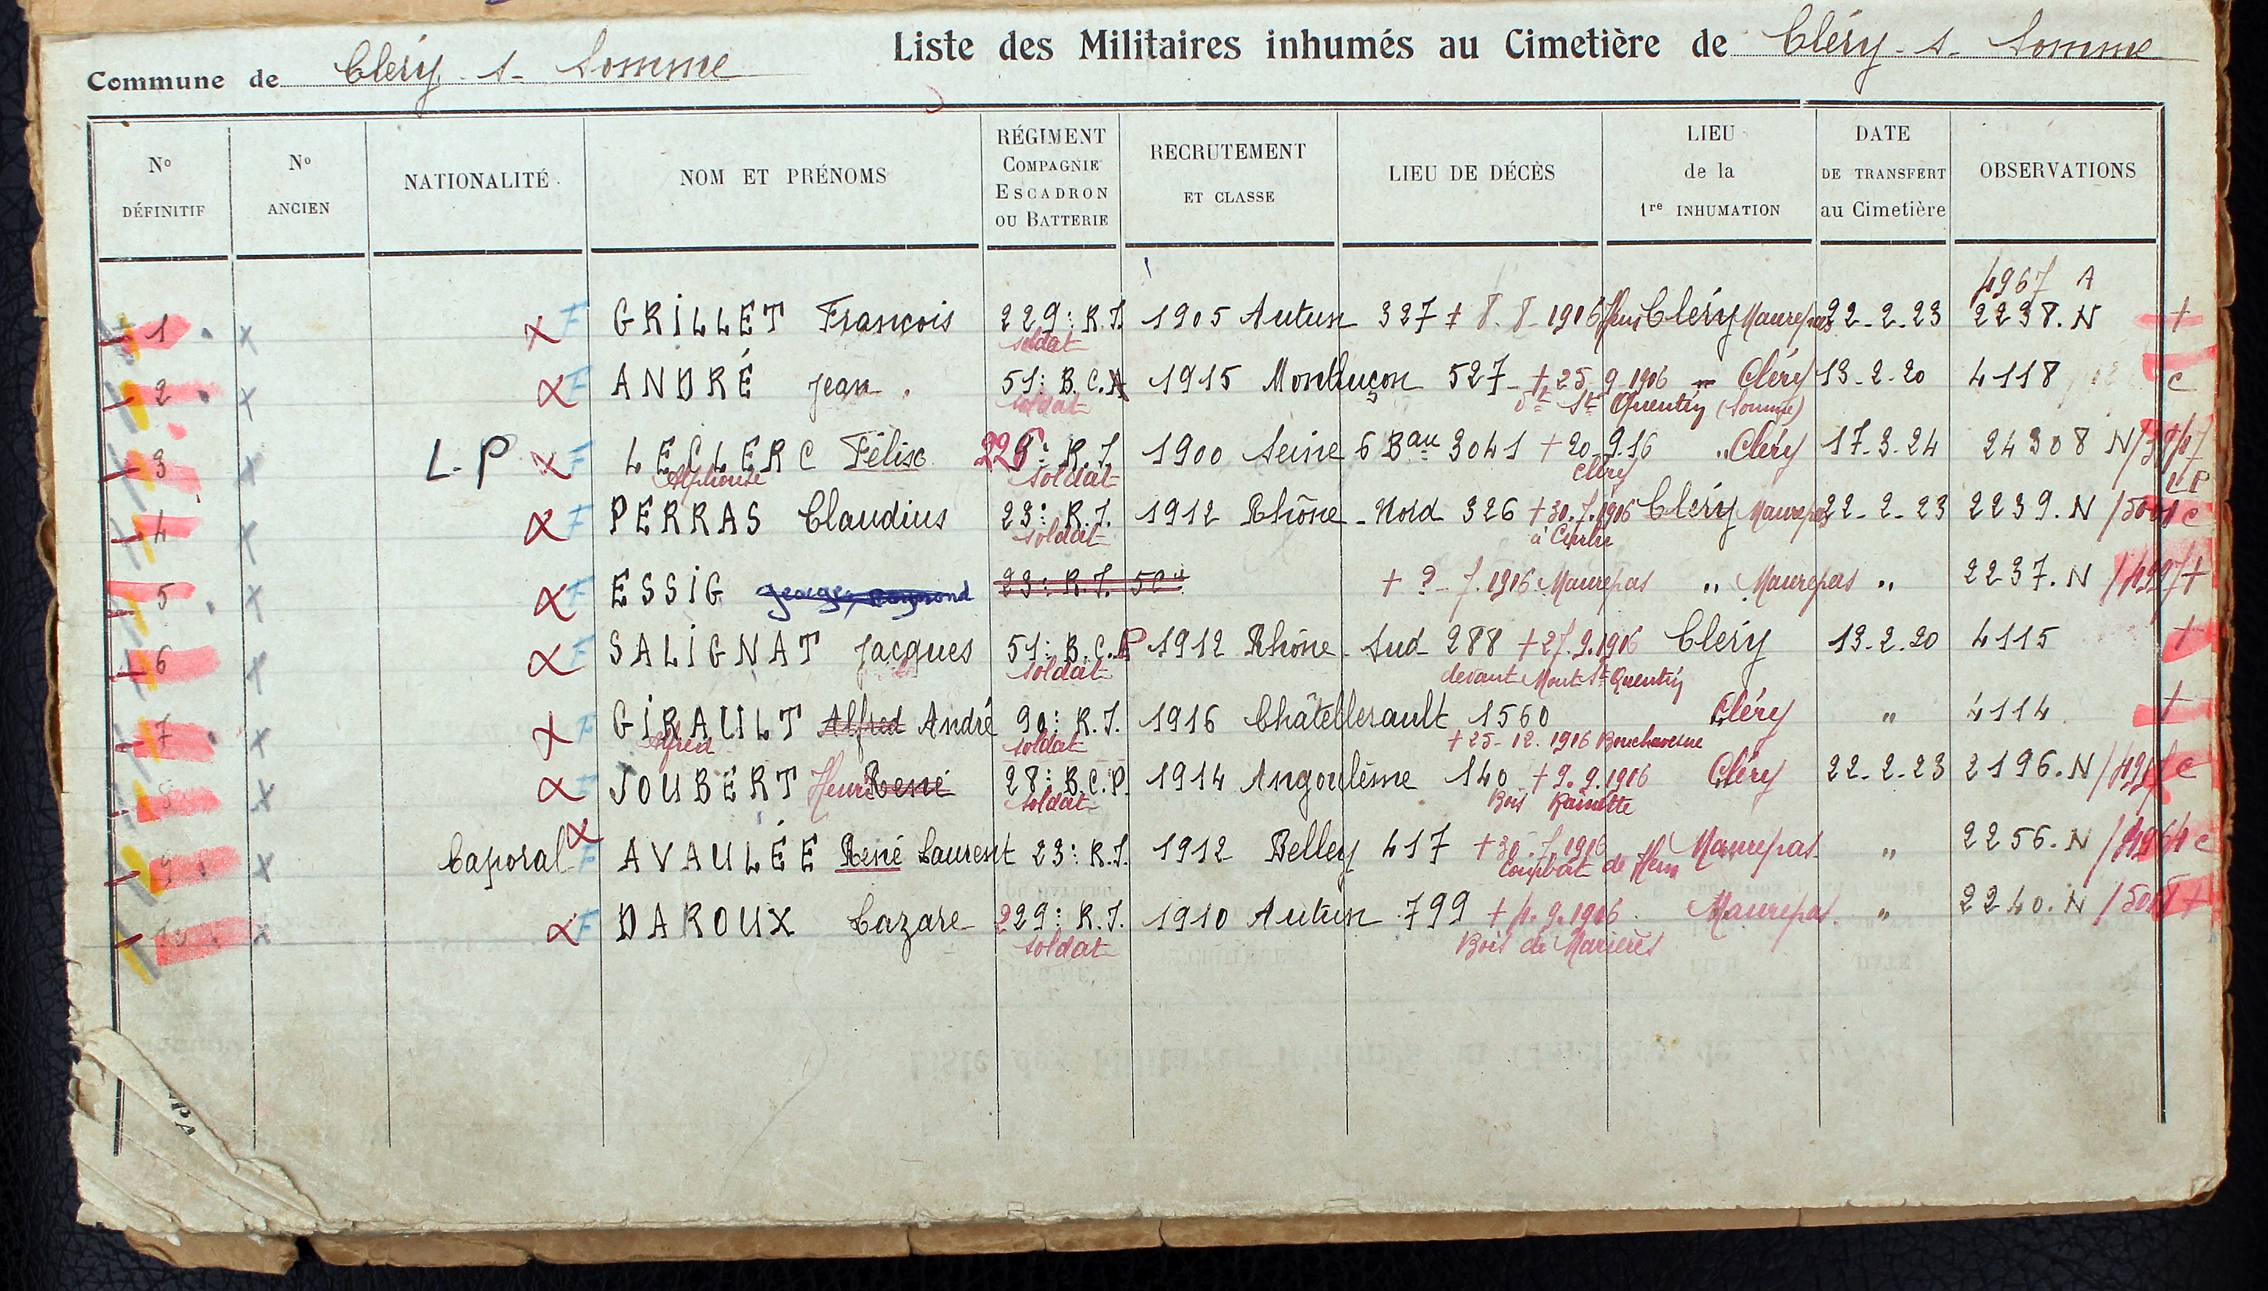 Commune de Cléry-s-Somme
Liste des Militaires inhumés au Cimetière de Cléry-s-Somme
No DÉFINITIF
No ANCIEN
NATIONALITÉ
NOM ET PRÉNOMS
RÉGIMENT
COMPAGNIE
ESCADRON
OU BATTERIE
RECRUTEMENT
ET CLASSE
LIEU DE DÉCÈS
LIEU
de la
1re INHUMATION
DATE
DE TRANSFERT
au Cimetière
OBSERVATIONS
4967 A
1 x F GRILLET François 229e R.I. 1905 Autun 327 + 8-8-1916 Cléry Maurepas 22-2-23 2238.N +
soldat
2 x F ANDRÉ Jean 51e B.C.A 1915 Montluçon 527 + 25-9-1916 Cléry 13-2-20 4118 c
soldat St Quentin (Somme)
3 x L.P F LECLERC Félix R.I. 1900 Seine 6 Bau 3041 + 20-9.16 " Cléry 17-3-24 24308 N
Alphonse soldat Cléry LP
4 x F PERRAS Claudius 23e R.I. 1912 Rhône-Nord 326 + 30.7.1916 Cléry Maurepas 22-2-23 2239.N c
soldat à Curlu
5 x F ESSIG Georges Raymond 23e R.I. 5e + ?-7.1916 Maurepas " Maurepas " 2237.N / 4997 +
6 x F SALIGNAT Jacques 51e B.C.P 1912 Rhône-Sud 288 + 27.9.1916 Cléry 13-2-20 4115 +
soldat devant Mont St Quentin
7 x F GIRAULT Alfred André 90e R.I. 1916 Châtellerault 1560 Cléry " 4114 +
Alfred soldat + 25-12.1916 Bouchavesne
8 x F JOUBERT Henri René 28e B.C.P. 1914 Angoulême 140 + 9.9.1916 Cléry 22-2-23 2196.N c
soldat Bois Rainette
9 x Caporal F AVAULÉE René Laurent 23e R.I. 1912 Belley 417 + 30.7.1916 Maurepas " 2256.N / 4964 c
combat de Hem
10 x F DAROUX Lazare 229e R.I. 1910 Autun 799 + 4.9.1916 Maurepas " 2240.N +
soldat Bois de Marières